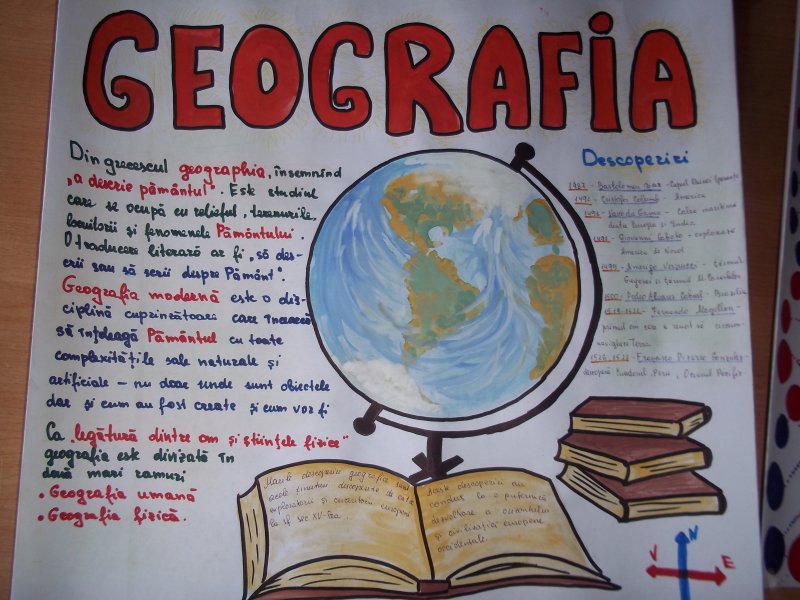 GEOGRAFIA
Din grecescul geographia, însemnînd
„a descrie pămîntul". Este studiul
care se ocupă cu relieful, terenurile,
locuitorii și fenomenele Pământului.
O traducere literară ar fi „să des-
crii sau să scrii despre Pământ".
Geografia modernă este o dis-
ciplină cuprinzătoare care încearcă
să înțeleagă Pământul cu toate
complexitățile sale naturale și
artificiale – nu doar unde sunt obiectele
dar și cum au fost create și cum vor fi
Ca „legătură dintre om și științele fizice"
geografia este divizată în
două mari ramuri
• Geografia umană
• Geografia fizică.
Descoperiri
1487 - Bartolomeu Diaz - Capul Bunei Speranțe
1492 - Cristofor Columb - America
Vasco da Gama - Calea maritimă
dintre Europa și India
Giovanni Caboto - explorează
America de Nord
1499 - Amerigo Vespucci - țărmul
1500 - Pedro Alvares Cabral - Brazilia
1519-1522 - Fernando Magellan -
primul om care a reușit să circum-
navigheze Terra
Francisco Pizarro
descoperă Ecuadorul, Peru, Oceanul Pacific
Marile descoperiri geografice sunt
acele ținuturi descoperite de către
exploratorii și cercetătorii europeni
la sf sec XV-lea.
Aceste descoperiri au
condus la o puternică
dezvoltare a orientului
și civilizației europene
occidentale.
N
V E